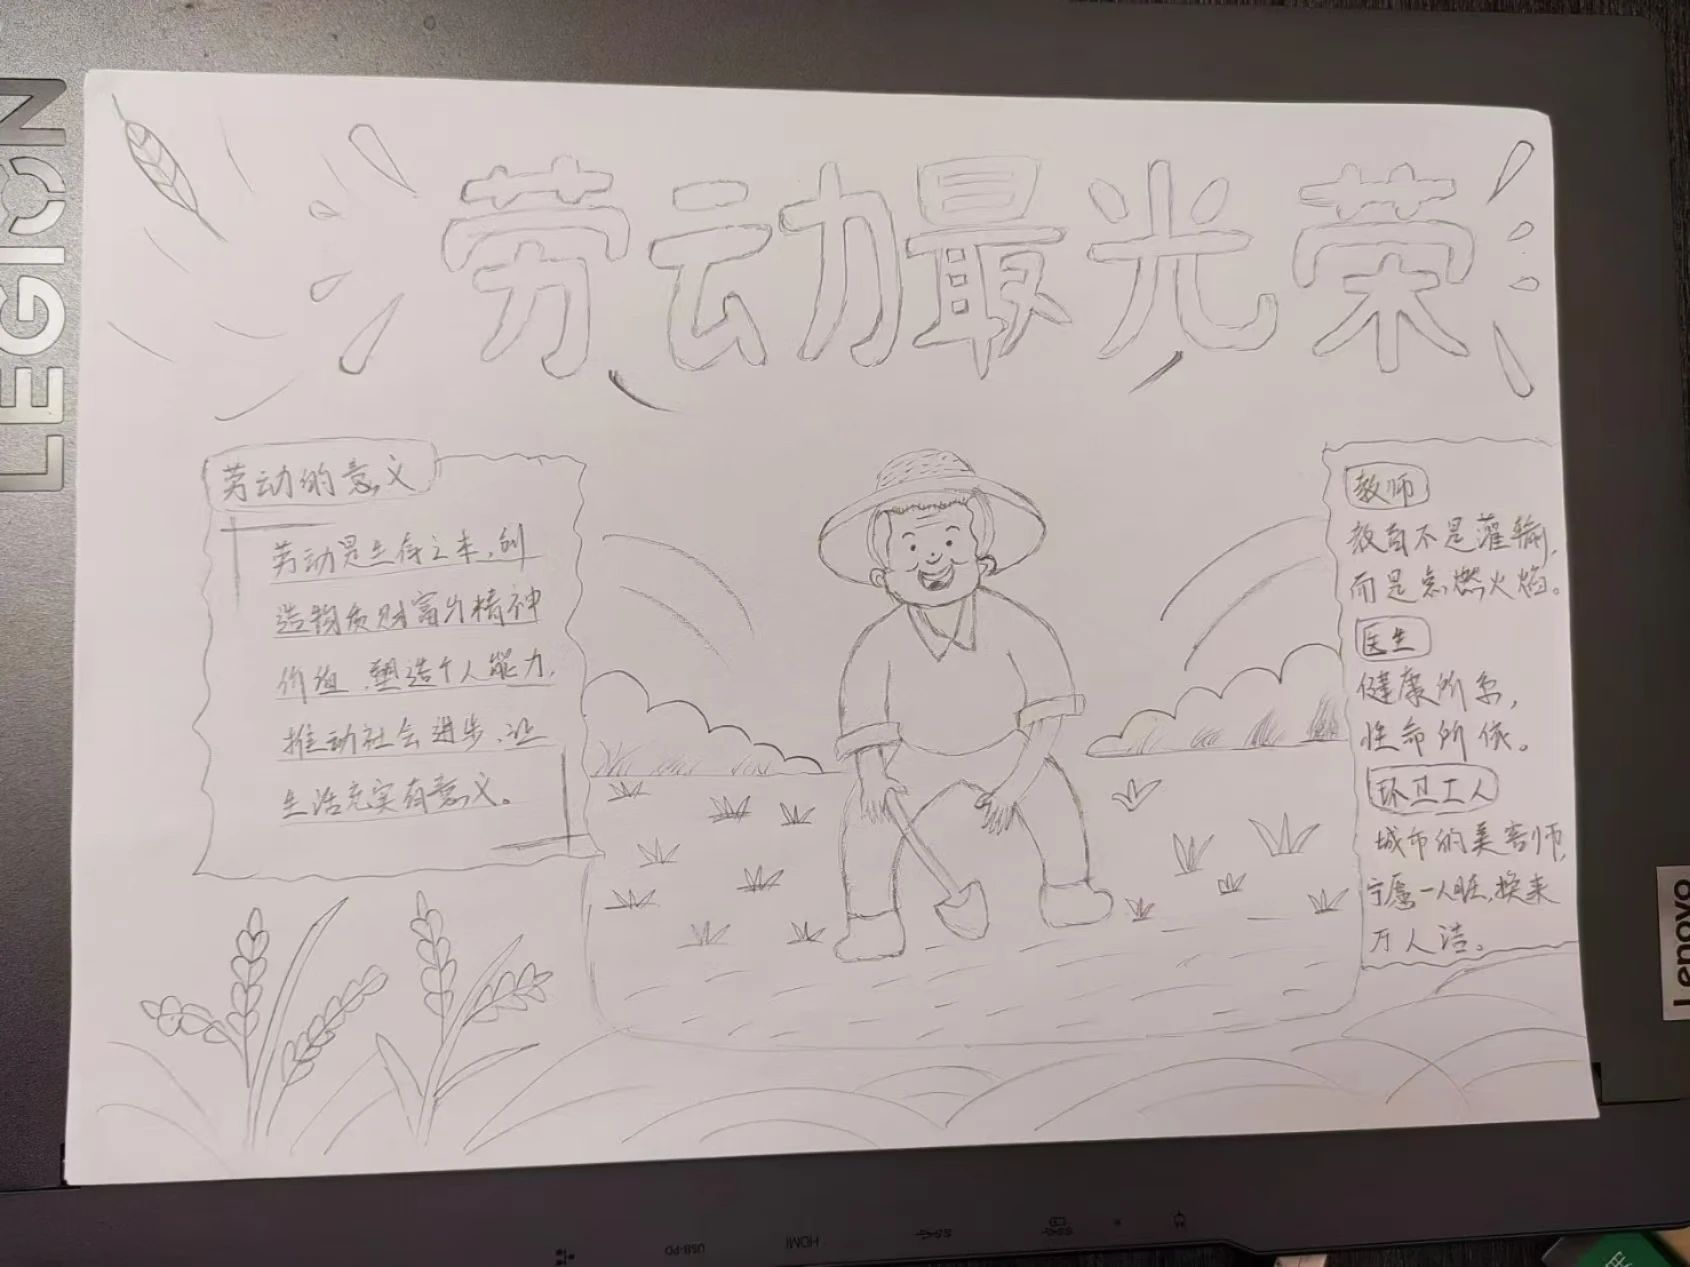 LEGION
劳动最光荣
劳动的意义
劳动是生存之本,创
造物质财富与精神
价值,塑造个人能力,
推动社会进步,让
生活充实有意义。
教师
教育不是灌输,
而是点燃火焰。
医生
健康所系,
性命所依。
环卫工人
城市的美容师,
宁愿一人脏,换来
万人洁。
Lenovo
USB-PD
HDMI